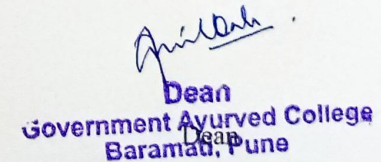 Dean
Government Ayurved College
Dean
Baramati, Pune